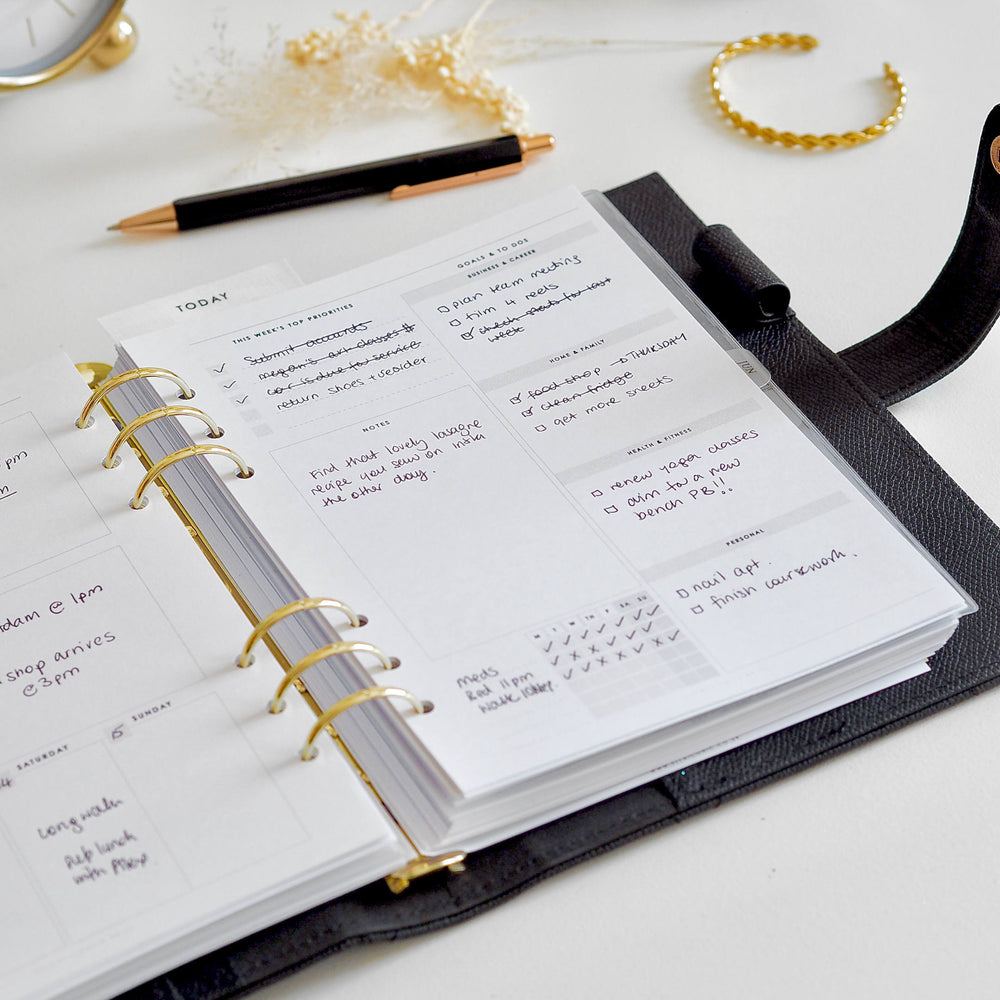 pm
adam @ 1pm
shop arrives
@ 3pm
SATURDAY
15 SUNDAY
long walk
pub lunch
with
TODAY
THIS WEEK'S TOP PRIORITIES
Submit accounts
megan's art classes #
car is due for service
return shoes + reorder
NOTES
Find that lovely lasagne
recipe you saw on insta
the other day.
meds
Bed 11pm
M T W TH F SA SU
GOALS & TO DOS
BUSINESS & CAREER
plan team meeting
film 4 reels
check for last
week
HOME & FAMILY
food shop → THURSDAY
clean fridge
get more sheets
HEALTH & FITNESS
renew yoga classes
aim for a new
bench PB!!
PERSONAL
nail apt.
finish coursework.
JUN